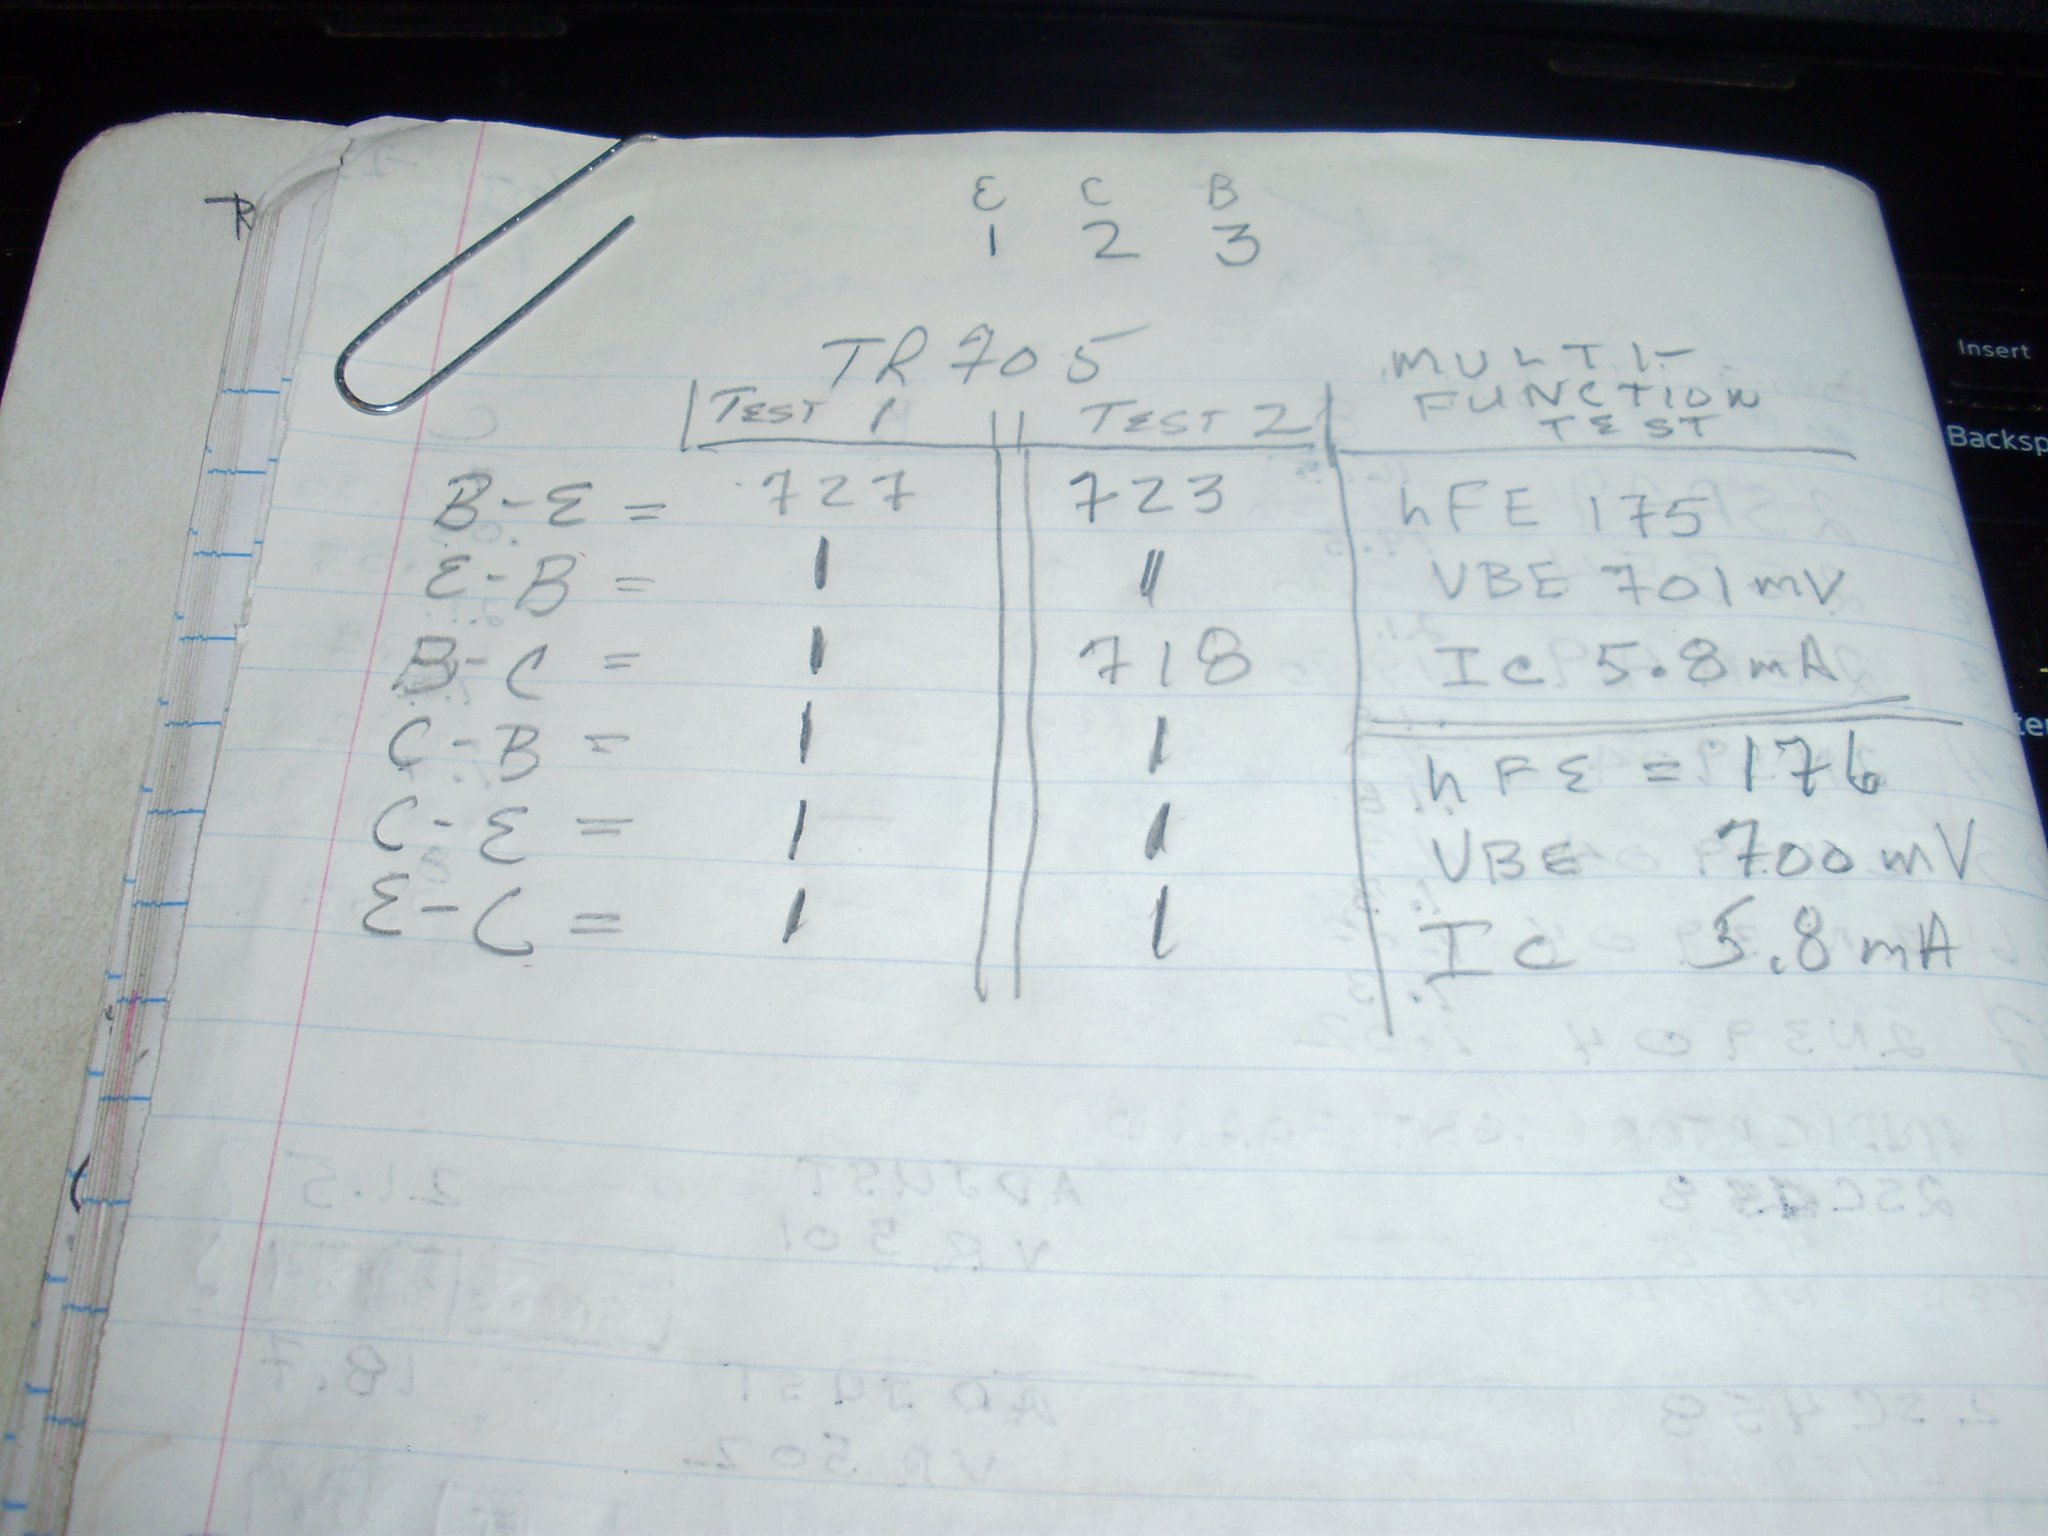 E C B
1 2 3
TR 705
TEST 1 TEST 2 MULTI-
FUNCTION
TEST
B-E = 727 723 hFE 175
E-B = 1 1 VBE 701mV
B-C = 1 718 IC 5.8 mA
C-B = 1 1 hFE = 176
C-E = 1 1 VBE 700 mV
E-C = 1 1 IC 5.8 mA
Insert
Backsp
TR